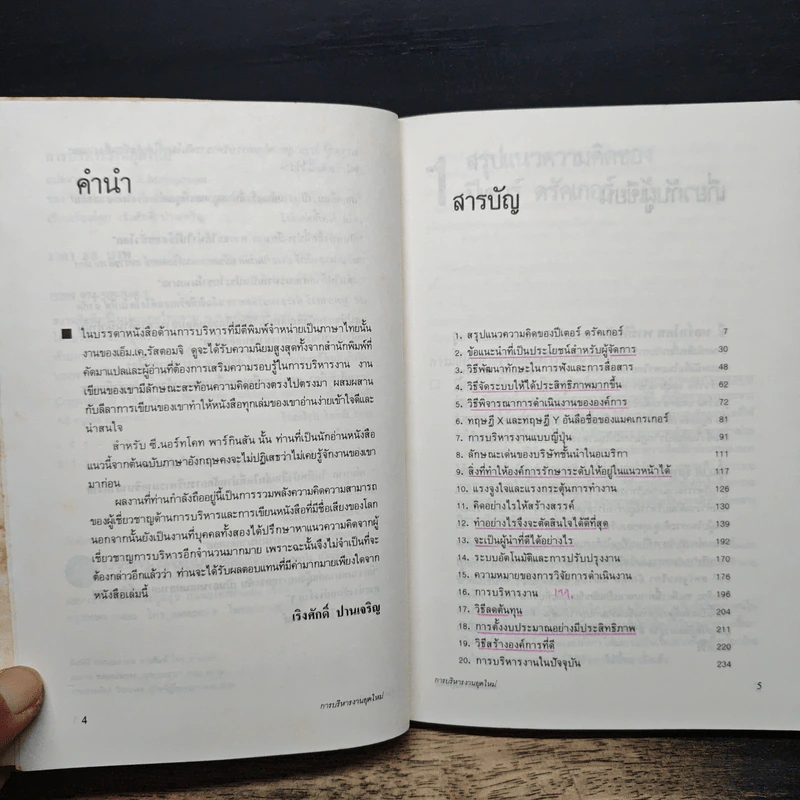 คำนำ
ในบรรดาหนังสือด้านการบริหารที่มีตีพิมพ์จำหน่ายเป็นภาษาไทยนั้น
งานของเอ็ม.เค.รัสตอมจิ ดูจะได้รับความนิยมสูงสุดทั้งจากสำนักพิมพ์ที่
คัดมาแปลและผู้อ่านที่ต้องการเสริมความรอบรู้ในการบริหารงาน งาน
เขียนของเขามีลักษณะสะท้อนความคิดอย่างตรงไปตรงมา ผสมผสาน
กับลีลาการเขียนของเขาทำให้หนังสือทุกเล่มของเขาอ่านง่ายเข้าใจดีและ
น่าสนใจ
สำหรับ ซี.นอร์ทโคท พาร์กินสัน นั้น ท่านที่เป็นนักอ่านหนังสือ
แนวนี้จากต้นฉบับภาษาอังกฤษคงจะไม่ปฏิเสธว่าไม่เคยรู้จักงานของเขา
มาก่อน
ผลงานที่ท่านกำลังถืออยู่นี้เป็นการรวมพลังความคิดความสามารถ
ของผู้เชี่ยวชาญด้านการบริหารและการเขียนหนังสือที่มีชื่อเสียงของโลก
นอกจากนั้นยังเป็นงานที่บุคคลทั้งสองได้ปรึกษาหาแนวความคิดจากผู้
เชี่ยวชาญการบริหารอีกจำนวนมากมาย เพราะฉะนั้นจึงไม่จำเป็นที่จะ
ต้องกล่าวอีกแล้วว่า ท่านจะได้รับผลตอบแทนที่มีค่ามากมายเพียงใดจาก
หนังสือเล่มนี้
เริงศักดิ์ ปานเจริญ
การบริหารงานยุคใหม่
4
สารบัญ
1. สรุปแนวความคิดของปีเตอร์ ดรัคเกอร์ 7
2. ข้อแนะนำที่เป็นประโยชน์สำหรับผู้จัดการ 30
3. วิธีพัฒนาทักษะในการฟังและการสื่อสาร 48
4. วิธีจัดระบบให้ได้ประสิทธิภาพมากขึ้น 62
5. วิธีพิจารณาการดำเนินงานขององค์การ 72
6. ทฤษฎี X และทฤษฎี Y อันลือชื่อของแมคเกรเกอร์ 81
7. การบริหารงานแบบญี่ปุ่น 91
8. ลักษณะเด่นของบริษัทชั้นนำในอเมริกา 111
9. สิ่งที่ทำให้องค์การรักษาระดับให้อยู่ในแนวหน้าได้ 117
10. แรงจูงใจและแรงกระตุ้นการทำงาน 126
11. คิดอย่างไรให้สร้างสรรค์ 130
12. ทำอย่างไรจึงจะตัดสินใจได้ดีที่สุด 139
13. จะเป็นผู้นำที่ดีได้อย่างไร 192
14. ระบบอัตโนมัติและการปรับปรุงงาน 170
15. ความหมายของการวิจัยการดำเนินงาน 176
16. การบริหารงาน 196
17. วิธีลดต้นทุน 204
18. การตั้งงบประมาณอย่างมีประสิทธิภาพ 211
19. วิธีสร้างองค์การที่ดี 220
20. การบริหารงานในปัจจุบัน 234
การบริหารงานยุคใหม่
5